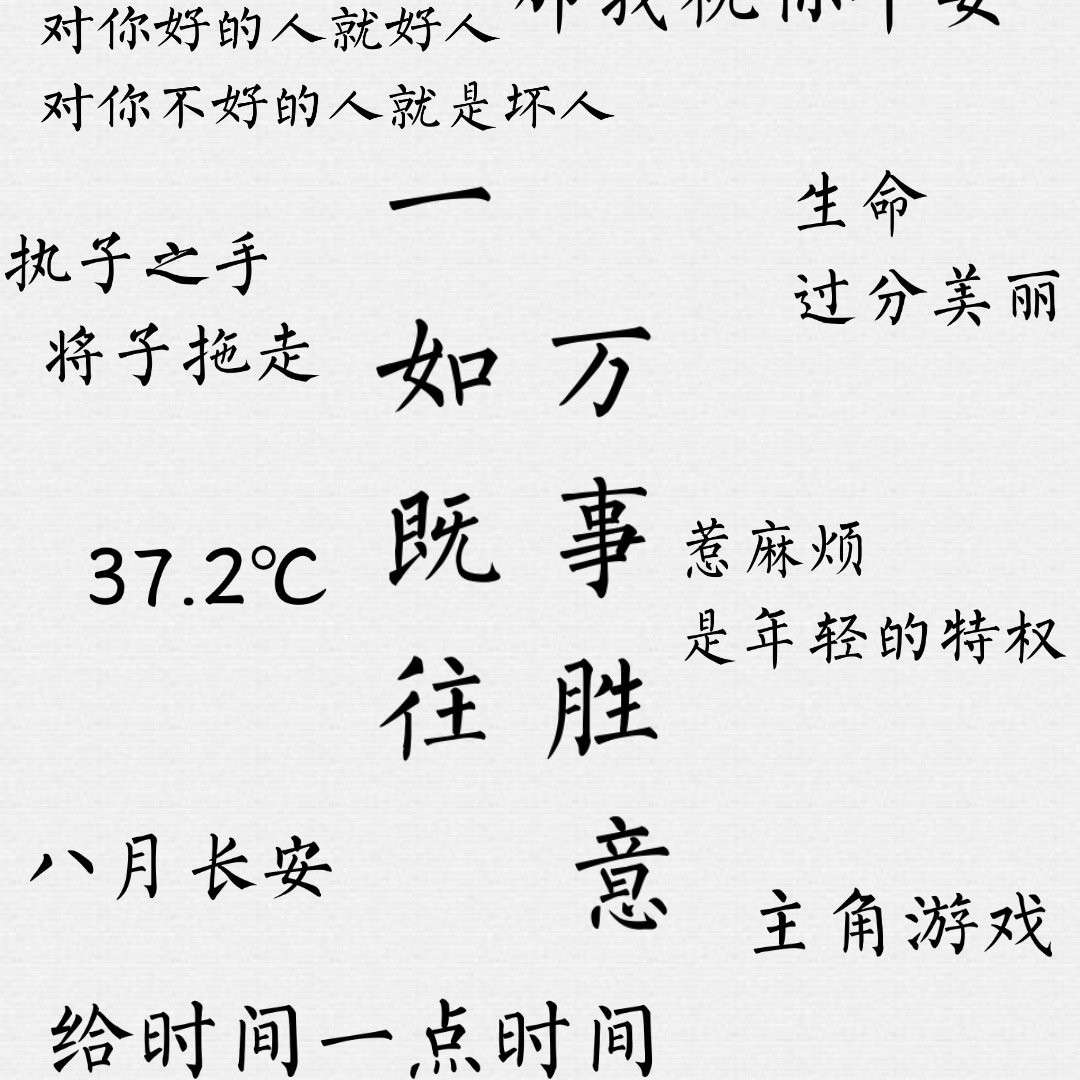 对你好的人就好人
对你不好的人就是坏人
生命
过分美丽
执子之手
将子拖走
一如既往
万事胜意
37.2℃
惹麻烦
是年轻的特权
八月长安
主角游戏
给时间一点时间